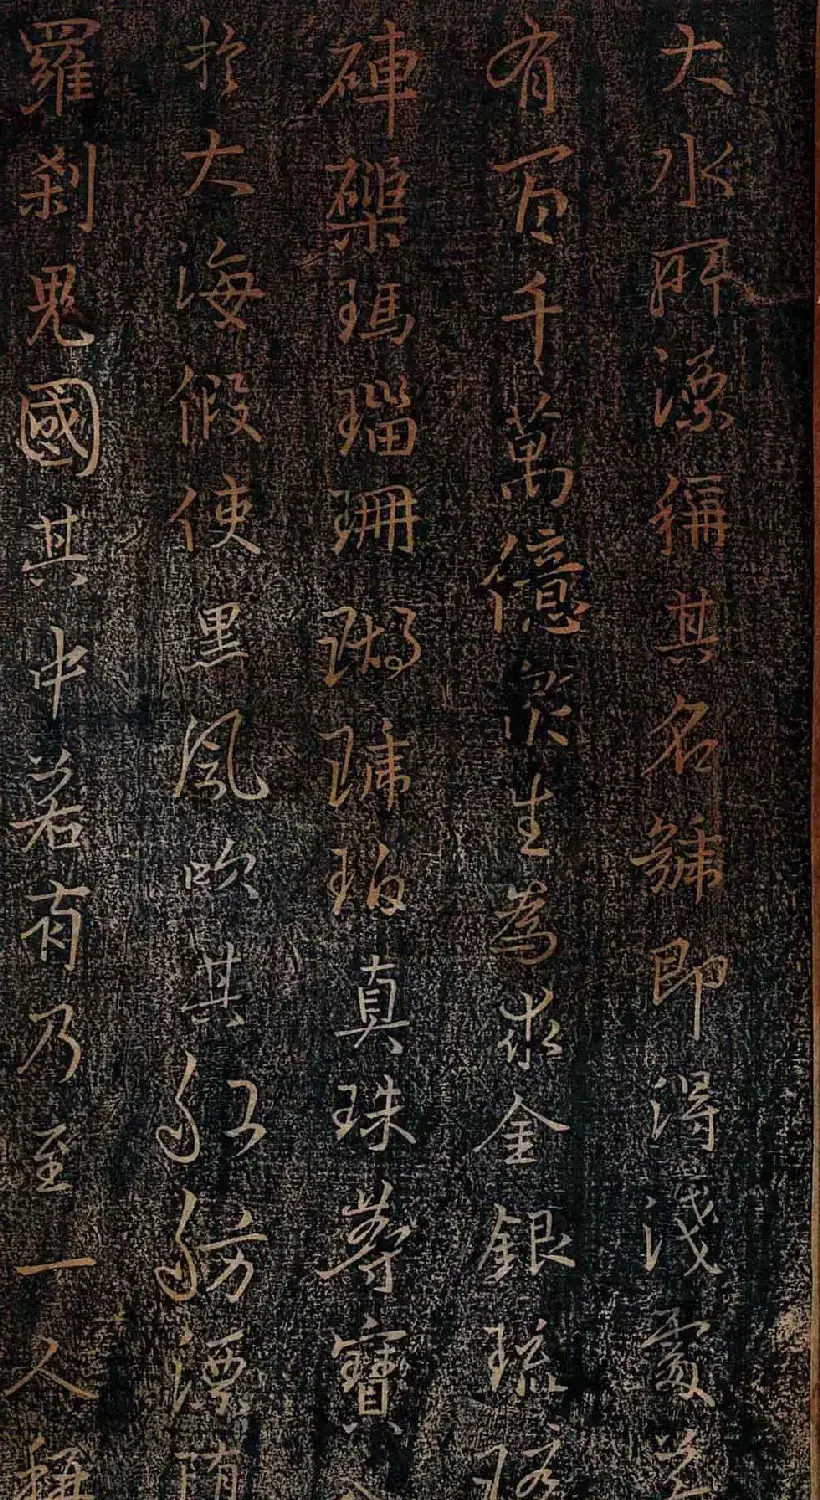 大水所漂稱其名號即得淺處若
有百千萬億眾生為求金銀琉璃
硨磲瑪瑙珊瑚琥珀真珠等寶入
於大海假使黑風吹其舡舫漂墮
羅剎鬼國其中若有乃至一人稱